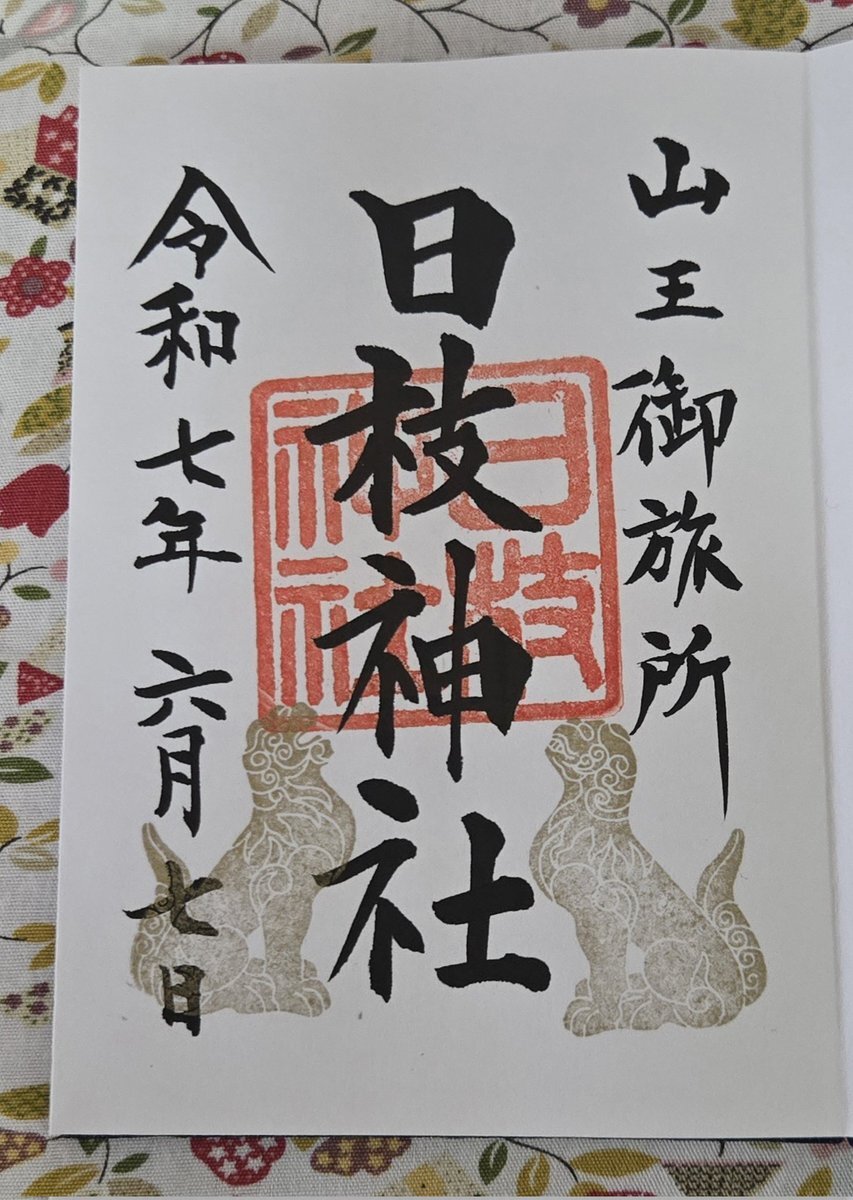 山王御旅所
日枝神社
日枝
神社
令和七年 六月 七日